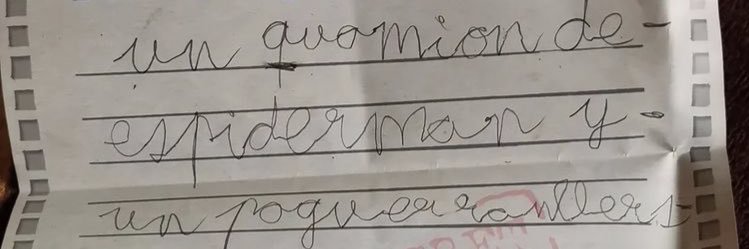 un quamion de-
espiderman y-
un poguerranllers